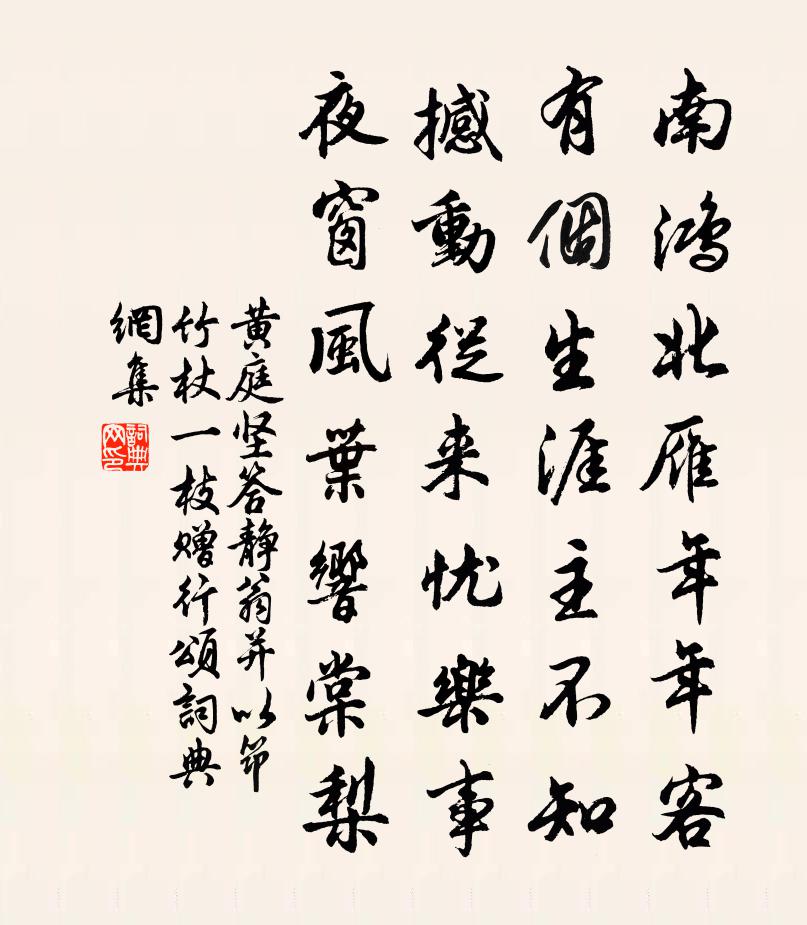 南鴻北雁年年客
有個生涯主不知
撼動從来忧樂事
夜窗風葉響棠梨
黄庭坚答静翁并以筇
竹杖一枝赠行頌詞典
網集
詞典网印